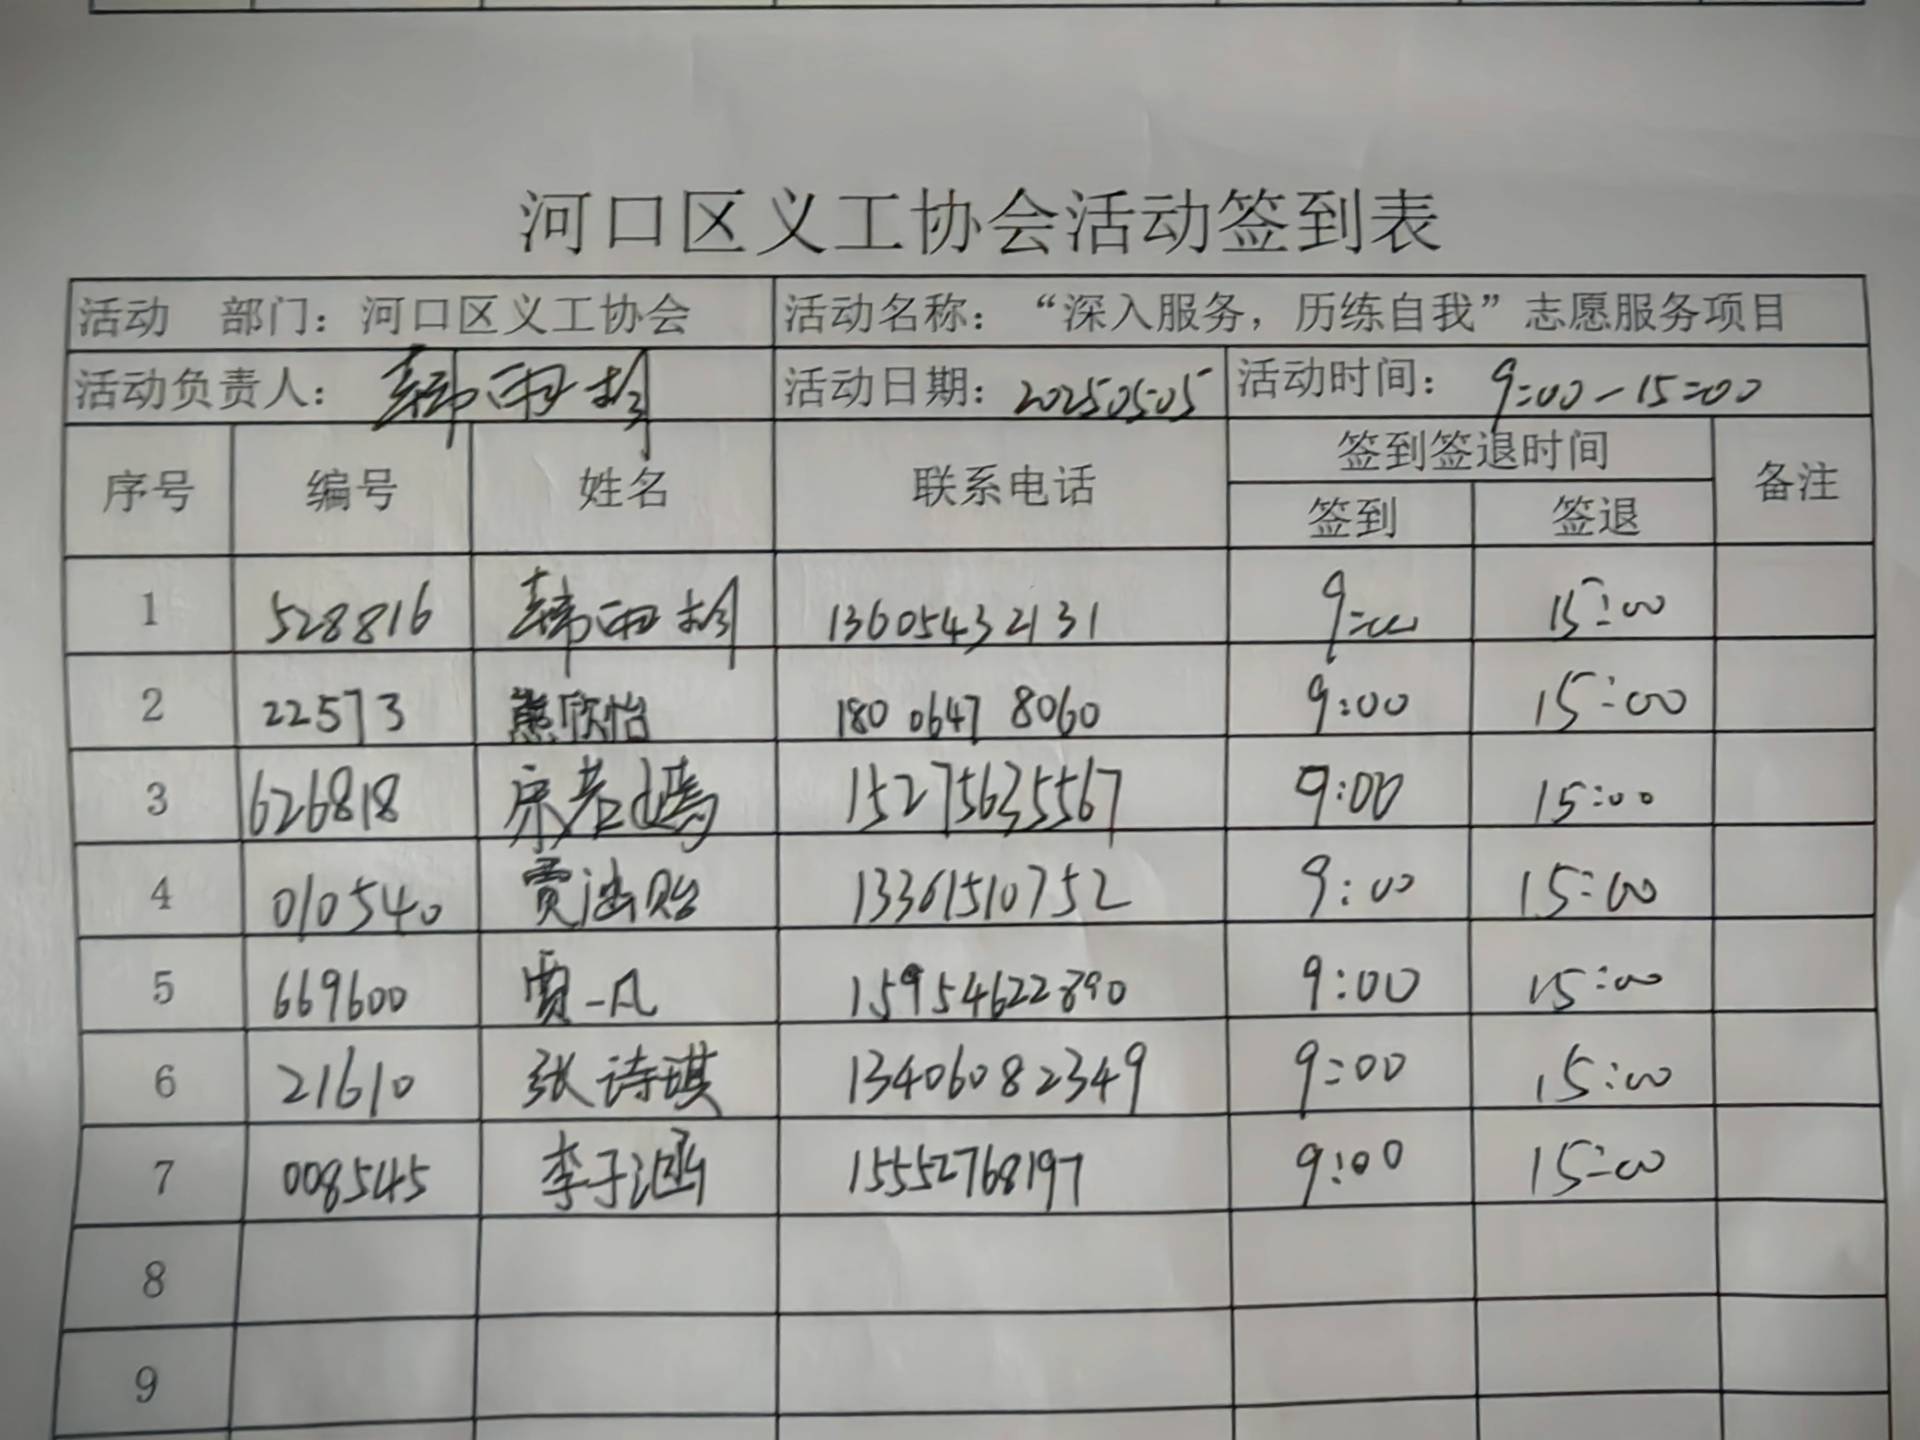 河口区义工协会活动签到表
活动 部门：河口区义工协会 活动名称：“深入服务，历练自我”志愿服务项目
活动负责人：韩雨 活动日期：20250505 活动时间：9:00-15:00
序号 编号 姓名 联系电话 签到签退时间 备注
签到 签退
1 528816 韩雨 13605432131 9:00 15:00
2 22573 熊欣怡 180 0647 8060 9:00 15:00
3 626818 15275635567 9:00 15:00
4 010540 贾涵贻 13361510752 9:00 15:00
5 669600 贾一凡 15954622890 9:00 15:00
6 21610 张诗琪 13406082349 9:00 15:00
7 008545 李子涵 15552768197 9:00 15:00
8
9